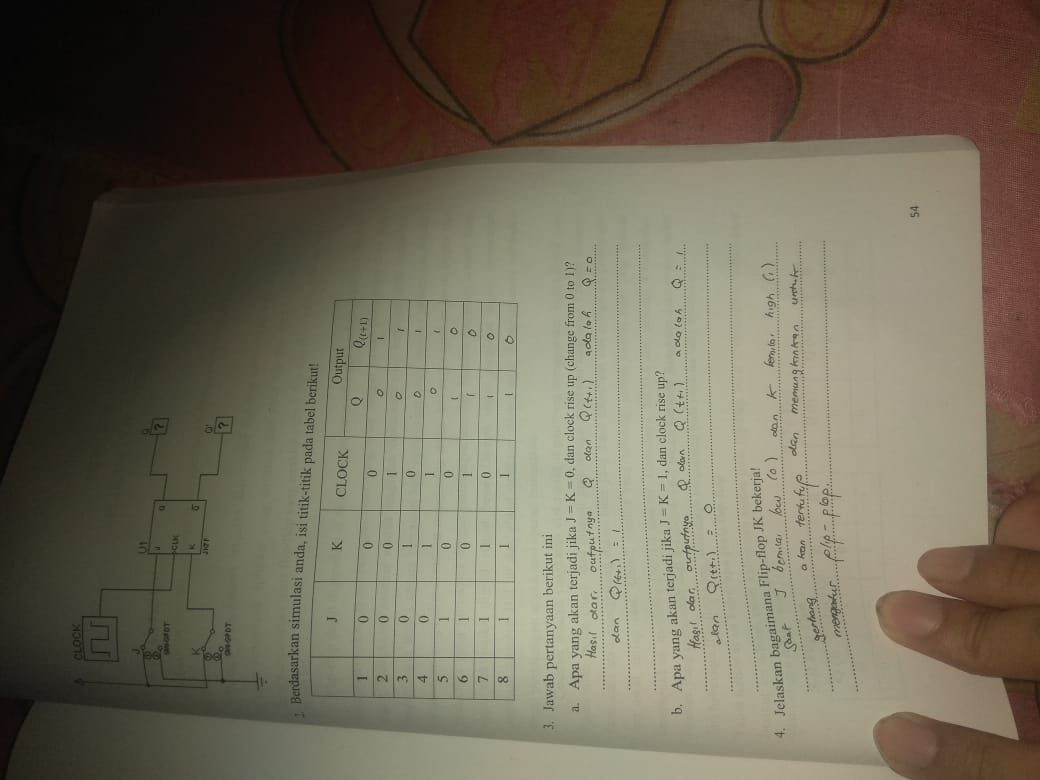 CLOCK
U1
J
CLK
K
JKFF
Q
Q
Q
?
Q'
?
J
SW-SPDT
K
SW-SPDT
2. Berdasarkan simulasi anda, isi titik-titik pada tabel berikut!
J K CLOCK Output
Q Q(t+1)
1 0 0 0 0 1
2 0 0 1 0 1
3 0 1 0 0 1
4 0 1 1 0 1
5 1 0 0 1 0
6 1 0 1 1 0
7 1 1 0 1 0
8 1 1 1 1 0
3. Jawab pertanyaan berikut ini
a. Apa yang akan terjadi jika J = K = 0, dan clock rise up (change from 0 to 1)?
Hasil dari outputnya Q dan Q(t+1) adalah Q = 0
dan Q(t+1) = 1
b. Apa yang akan terjadi jika J = K = 1, dan clock rise up?
Hasil dari outputnya Q dan Q(t+1) adalah Q = 1
dan Q(t+1) = 0
4. Jelaskan bagaimana Flip-flop JK bekerja!
Saat J bernilai low (0) dan K bernilai high (1)
gerbang akan tertutup dan memungkinkan untuk
mengatur flip-flop.
54